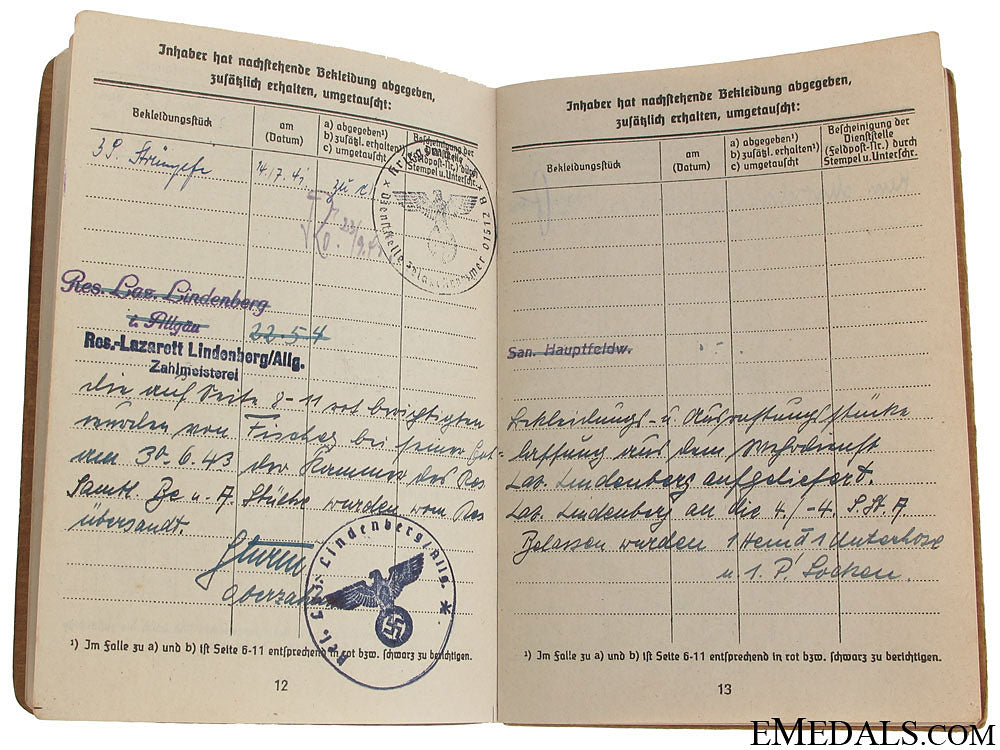 Inhaber hat nachstehende Bekleidung abgegeben,
zusätzlich erhalten, umgetauscht:
Bekleidungsstück
am
(Datum)
a) abgegeben¹)
b) zusätzl. erhalten¹)
c) umgetauscht
Bescheinigung der
Dienststelle
(Feldpost-Nr.) durch
Stempel u. Unterschr.
3 P. Strümpfe 14.7.41 zu c
Dienststelle Feldpostnummer 01512 B
Res. Laz. Lindenberg
i. Allgäu 22 5 4
Res.-Lazarett Lindenberg/Allg.
Zahlmeisterei
die auf Seite 8-11 rot berichtigten
wurden von Fischer bei seiner Ent-
am 30.6.43 der Kammer des Res
Sämtl. Be u. A. Stücke wurden vom Res
übersandt.
Sturm
Oberzahl
Lindenberg/Allg.
¹) Im Falle zu a) und b) ist Seite 6-11 entsprechend in rot bzw. schwarz zu berichtigen.
12
Inhaber hat nachstehende Bekleidung abgegeben,
zusätzlich erhalten, umgetauscht:
Bekleidungsstück
am
(Datum)
a) abgegeben¹)
b) zusätzl. erhalten¹)
c) umgetauscht
Bescheinigung der
Dienststelle
(Feldpost-Nr.) durch
Stempel u. Unterschr.
San. Hauptfeldw.
Bekleidungs- u. Ausrüstungsstücke
lassung aus dem Wehrdienst
Laz. Lindenberg aufgeliefert.
Laz. Lindenberg an die 4./
Belassen wurden 1 Hemd 1 Unterhose
u. 1. P. Socken.
¹) Im Falle zu a) und b) ist Seite 6-11 entsprechend in rot bzw. schwarz zu berichtigen.
13
EMEDALS.COM